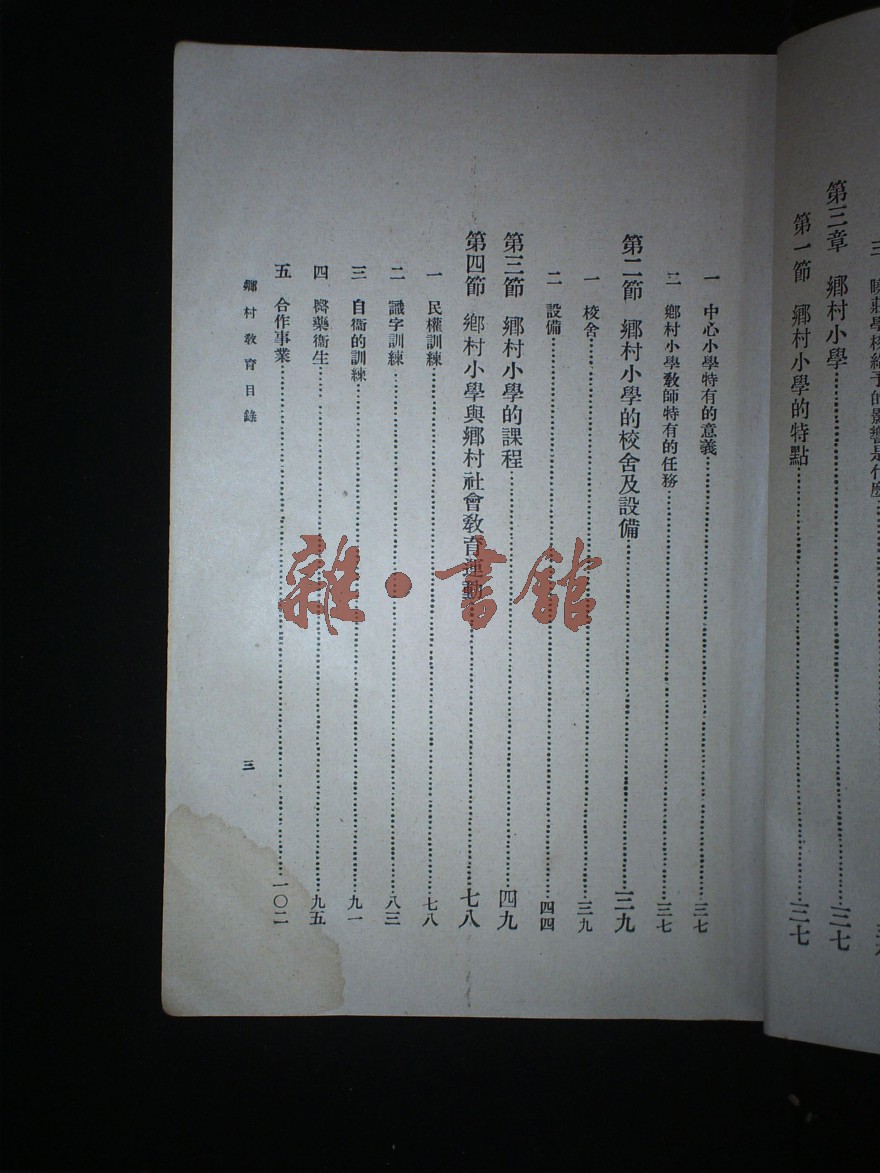 三 曉莊學校給予的影響是什麼
第三章 鄉村小學……三七
第一節 鄉村小學的特點……三七
一 中心小學特有的意義……三七
二 鄉村小學教師特有的任務……三七
第二節 鄉村小學的校舍及設備……三九
一 校舍……三九
二 設備……四四
第三節 鄉村小學的課程……四九
第四節 鄉村小學與鄉村社會教育運動……七八
一 民權訓練……七八
二 識字訓練……八三
三 自衞的訓練……九一
四 醫藥衞生……九五
五 合作事業……一〇二
鄉村教育目錄 三
雜·書館